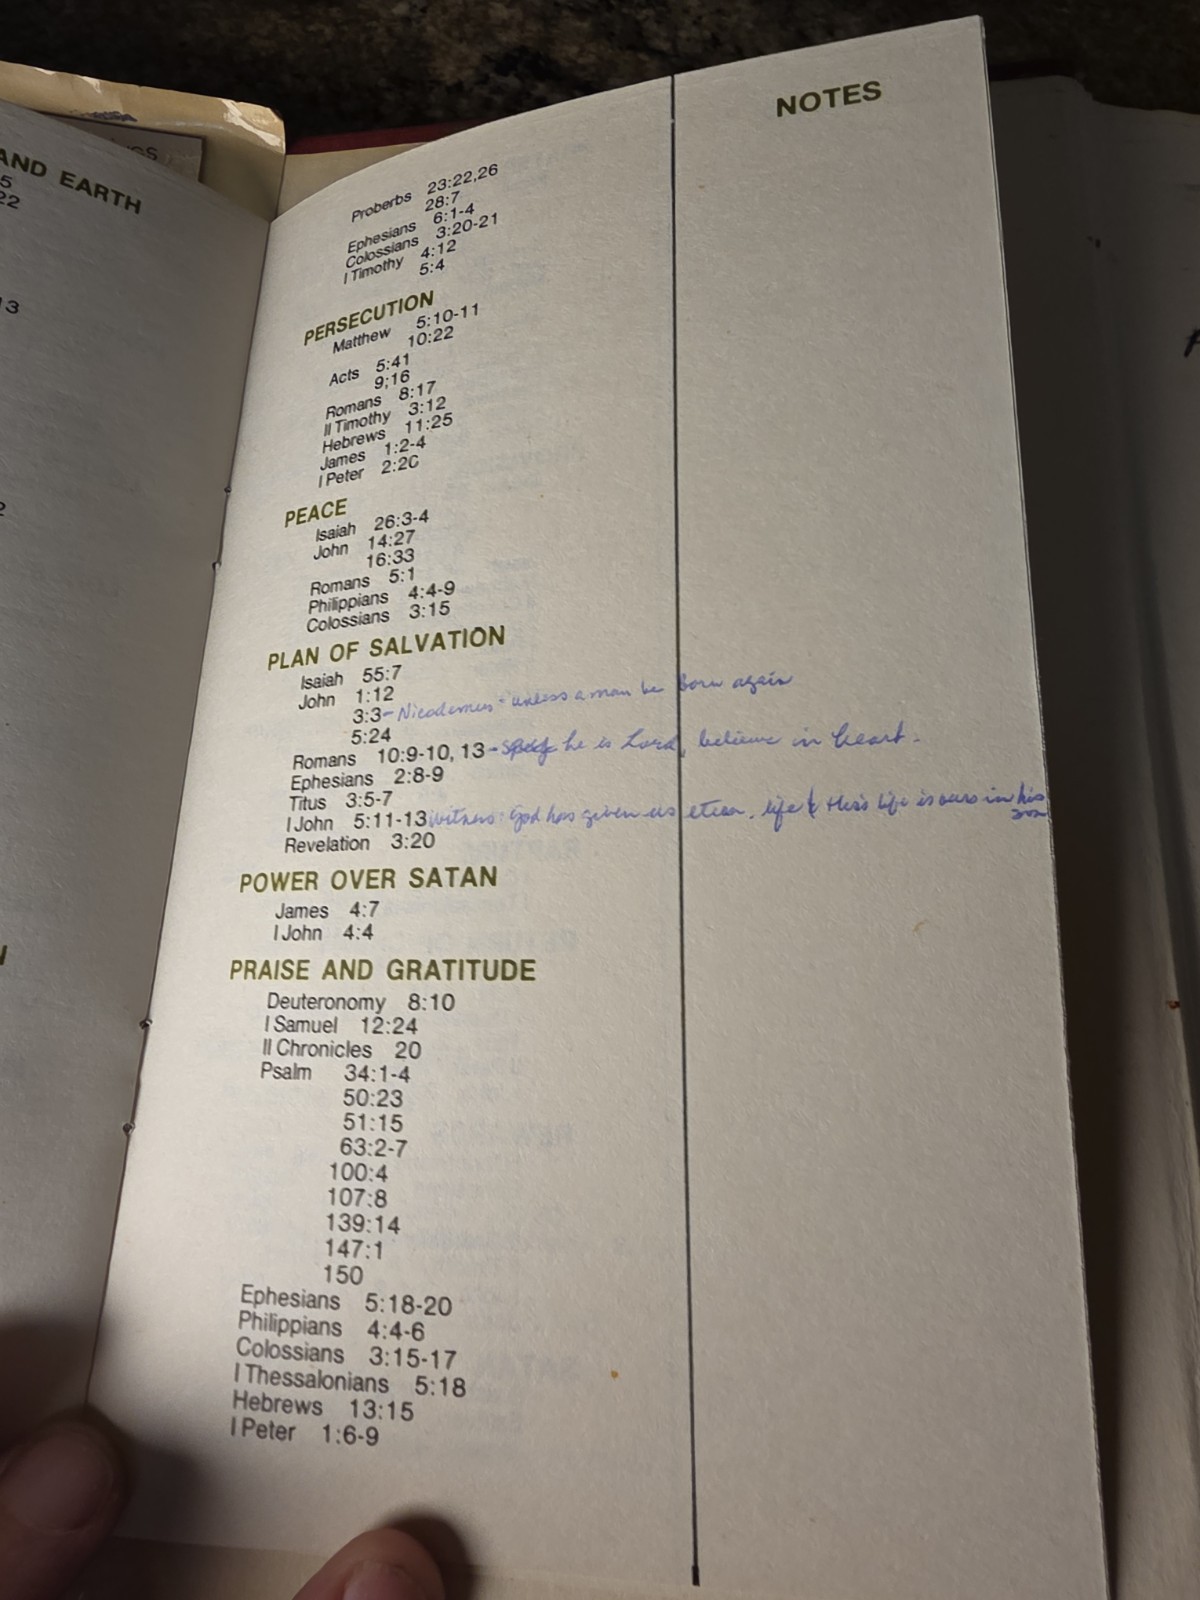 AND EARTH
5
22
13
2
N
NOTES
Proberbs 23:22,26
28:7
Ephesians 6:1-4
Colossians 3:20-21
I Timothy 4:12
5:4
PERSECUTION
Matthew 5:10-11
10:22
Acts 5:41
9;16
Romans 8:17
II Timothy 3:12
Hebrews 11:25
James 1:2-4
I Peter 2:20
PEACE
Isaiah 26:3-4
John 14:27
16:33
Romans 5:1
Philippians 4:4-9
Colossians 3:15
PLAN OF SALVATION
Isaiah 55:7
John 1:12
3:3 - Nicodemus - unless a man be born again
5:24
Romans 10:9-10, 13 - he is Lord, believe in heart.
Ephesians 2:8-9
Titus 3:5-7
I John 5:11-13 witness: God has given us life & this life is ours in his
son
Revelation 3:20
POWER OVER SATAN
James 4:7
I John 4:4
PRAISE AND GRATITUDE
Deuteronomy 8:10
I Samuel 12:24
II Chronicles 20
Psalm 34:1-4
50:23
51:15
63:2-7
100:4
107:8
139:14
147:1
150
Ephesians 5:18-20
Philippians 4:4-6
Colossians 3:15-17
I Thessalonians 5:18
Hebrews 13:15
I Peter 1:6-9